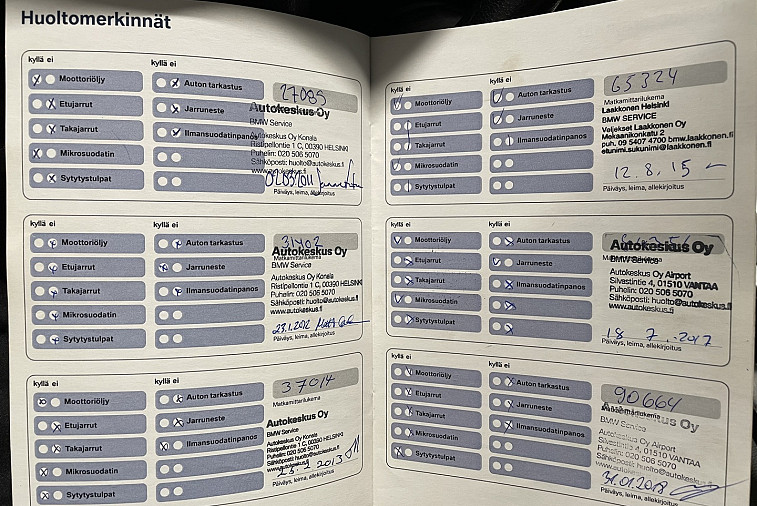 Huoltomerkinnät
kyllä ei
kyllä ei
Moottoriöljy
Auton tarkastus
27085
Etujarrut
Jarruneste
Autokeskus Oy
BMW Service
Takajarrut
Ilmansuodatinpanos
Autokeskus Oy Konala
Ristipellontie 1 C, 00390 HELSINKI
Mikrosuodatin
Puhelin: 020 506 5070
Sähköposti: huolto@autokeskus.fi
www.autokeskus.fi
Sytytystulpat
Päiväys, leima, allekirjoitus
kyllä ei
kyllä ei
Moottoriöljy
Auton tarkastus
31402
Autokeskus Oy
Matkamittarilukema
BMW Service
Etujarrut
Jarruneste
Autokeskus Oy Konala
Ristipellontie 1 C, 00390 HELSINKI
Takajarrut
Ilmansuodatinpanos
Puhelin: 020 506 5070
Sähköposti: huolto@autokeskus.fi
www.autokeskus.fi
Mikrosuodatin
23.1.2012
Sytytystulpat
Päiväys, leima, allekirjoitus
kyllä ei
kyllä ei
Moottoriöljy
Auton tarkastus
37014
Matkamittarilukema
Etujarrut
Jarruneste
Autokeskus Oy
BMW Service
Takajarrut
Ilmansuodatinpanos
Autokeskus Oy Konala
Ristipellontie 1 C, 00390 HELSINKI
Puhelin: 020 506 5070
Mikrosuodatin
Sähköposti: huolto@autokeskus.fi
www.autokeskus.fi
2013
Sytytystulpat
Päiväys, leima, allekirjoitus
kyllä ei
kyllä ei
Moottoriöljy
Auton tarkastus
65324
Matkamittarilukema
Laakkonen Helsinki
BMW SERVICE
Etujarrut
Jarruneste
Veljekset Laakkonen Oy
Mekaanikonkatu 2
Takajarrut
Ilmansuodatinpanos
puh. 09 5407 4700 bmw.laakkonen.fi
etunimi.sukunimi@laakkonen.fi
Mikrosuodatin
12.8.15
Sytytystulpat
Päiväys, leima, allekirjoitus
kyllä ei
kyllä ei
Moottoriöljy
Auton tarkastus
Autokeskus Oy
BMW Service
Etujarrut
Jarruneste
Autokeskus Oy Airport
Silvestintie 4, 01510 VANTAA
Takajarrut
Ilmansuodatinpanos
Puhelin: 020 506 5070
Sähköposti: huolto@autokeskus.fi
www.autokeskus.fi
Mikrosuodatin
18 7 .-2017
Sytytystulpat
Päiväys, leima, allekirjoitus
kyllä ei
kyllä ei
Moottoriöljy
Auton tarkastus
90664
Matkamittarilukema
Autokeskus Oy
Etujarrut
Jarruneste
BMW Service
Takajarrut
Ilmansuodatinpanos
Autokeskus Oy Airport
Silvestintie 4, 01510 VANTAA
Mikrosuodatin
Puhelin: 020 506 5070
Sähköposti: huolto@autokeskus.fi
www.autokeskus.fi
Sytytystulpat
31.01.2018
Päiväys, leima, allekirjoitus